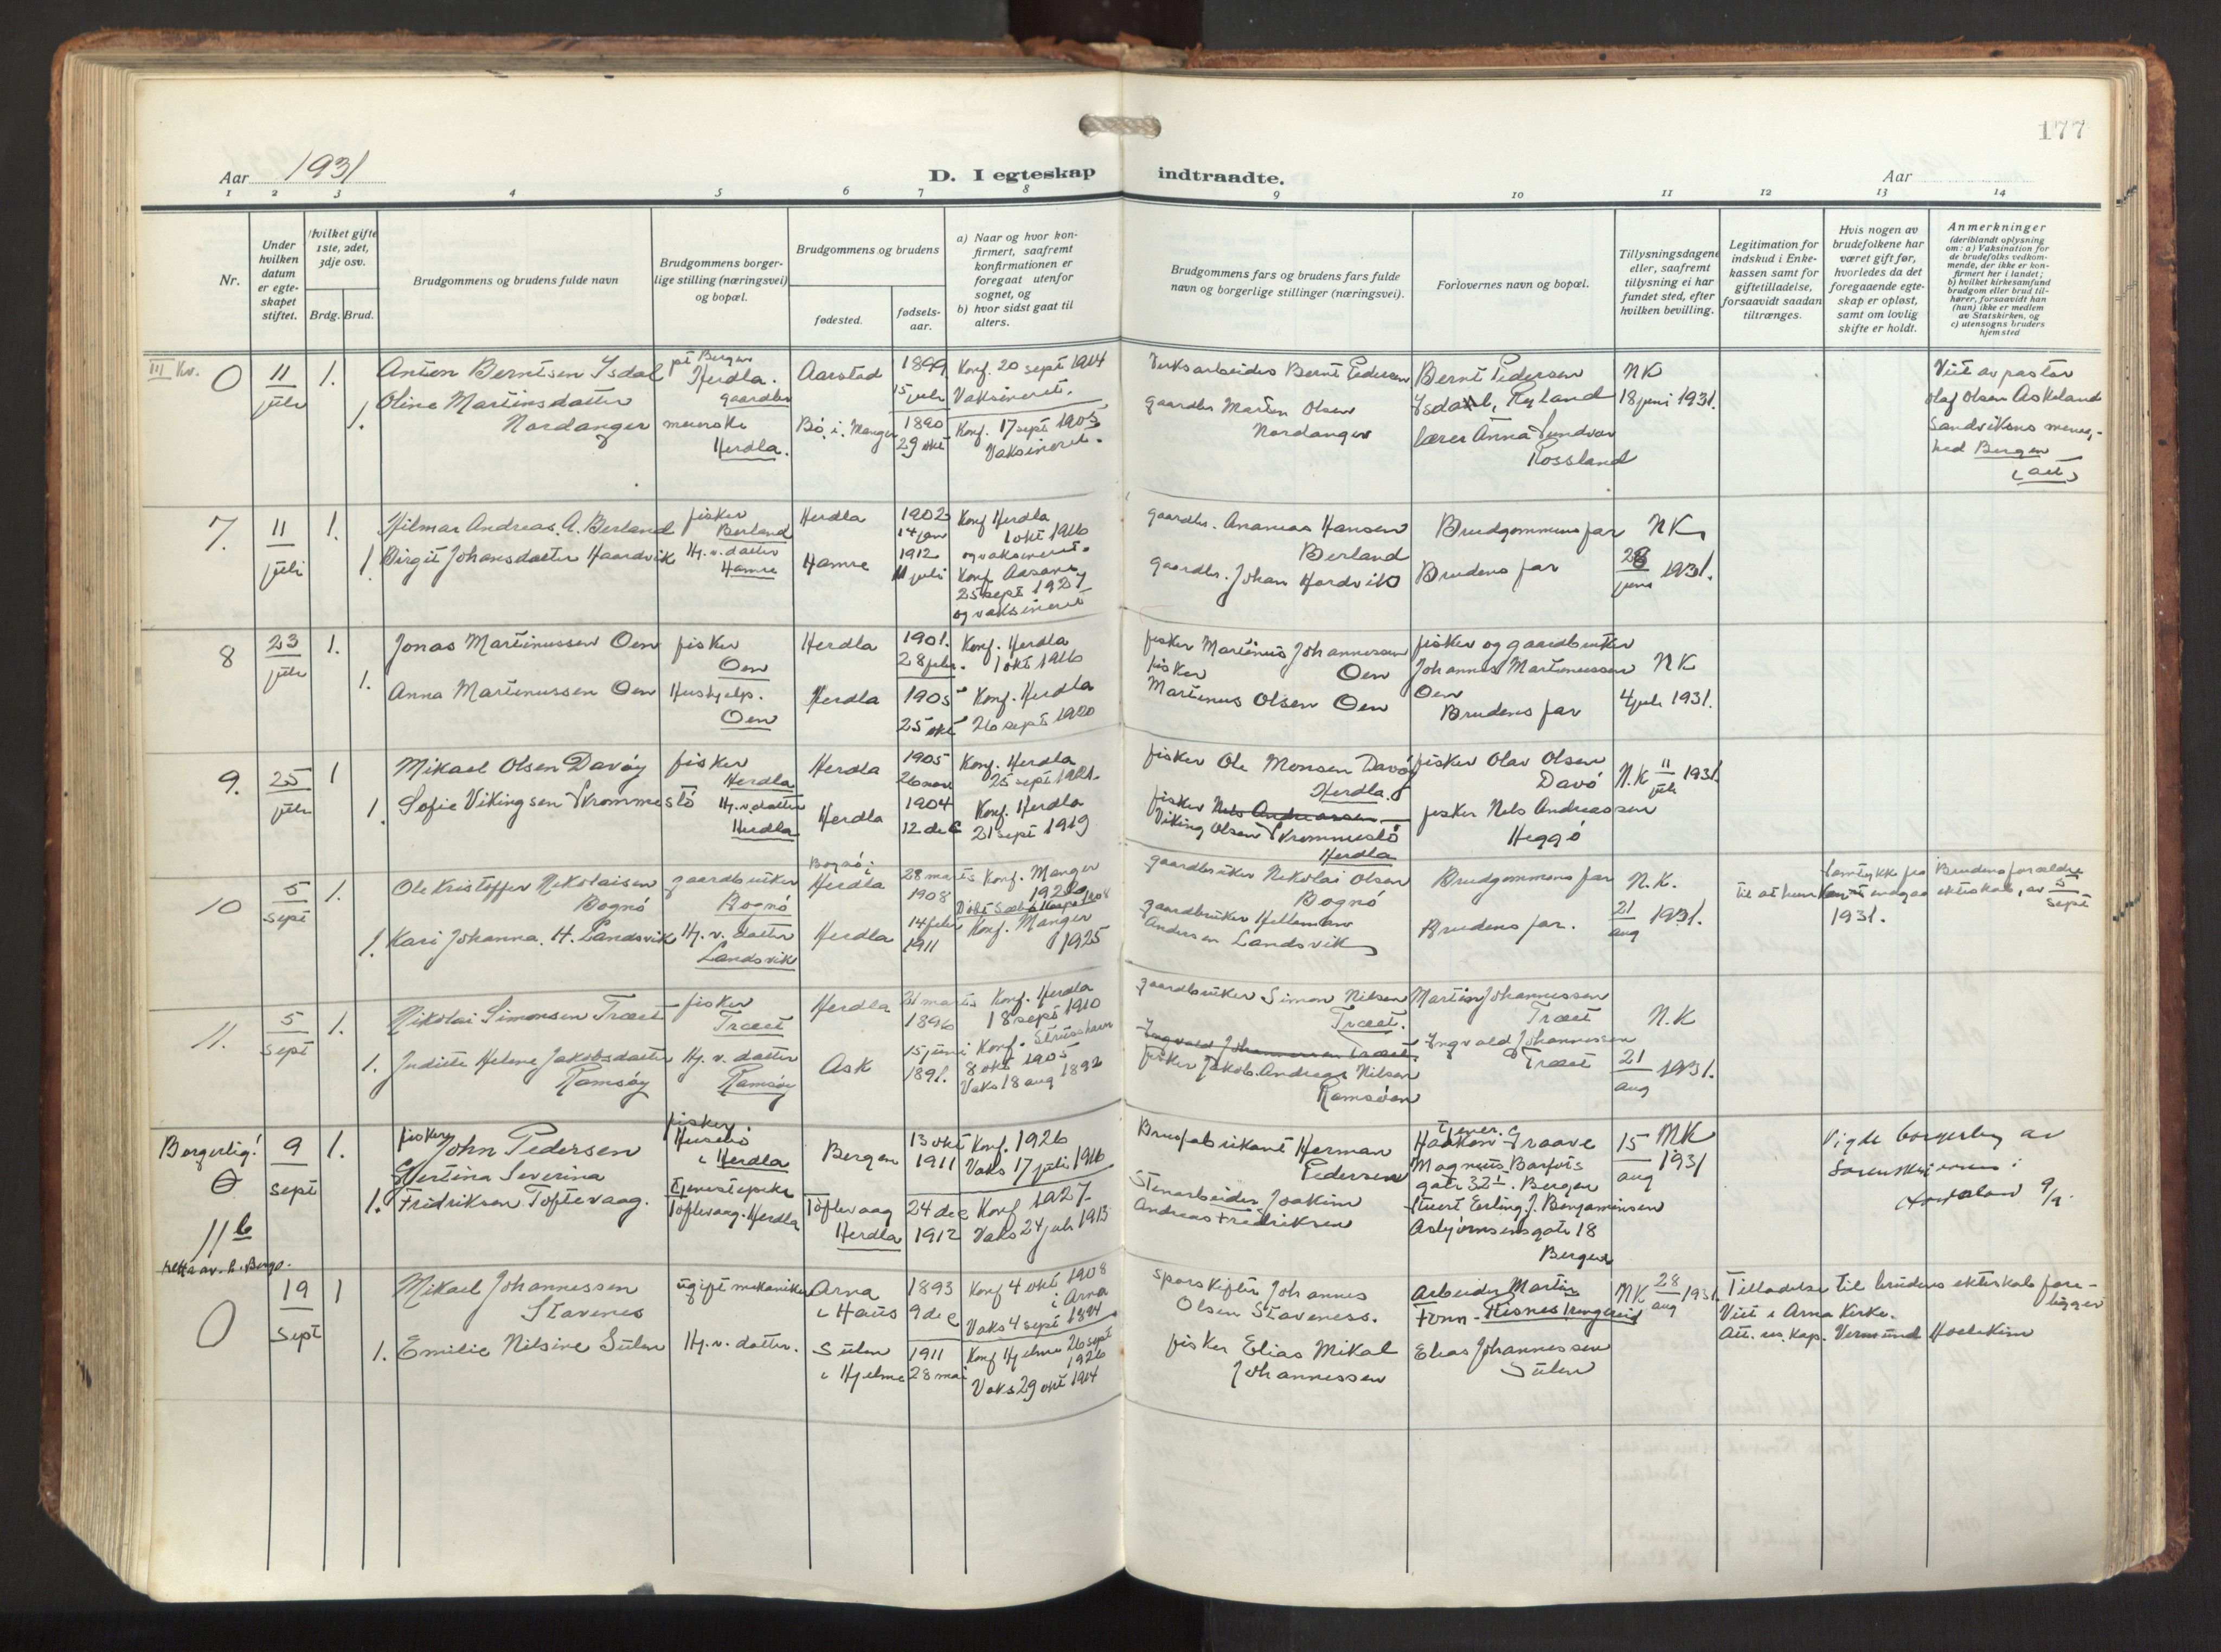 177
Aar 1931
D. I egteskap indtraadte.
Aar
1 2 3 4 5 6 7 8 9 10 11 12 13 14
Nr.
Under hvilken datum er egte-skapet stiftet.
Hvilket gifte 1ste, 2det, 3dje osv.
Brdg. Brud.
Brudgommens og brudens fulde navn
Brudgommens borger-lige stilling (næringsvei) og bopæl.
Brudgommens og brudens
fødested.
fødsels-aar.
a) Naar og hvor kon-firmert, saafremt konfirmationen er foregaat utenfor sognet, og
b) hvor sidst gaat til alters.
Brudgommens fars og brudens fars fulde navn og borgerlige stillinger (næringsvei).
Forlovernes navn og bopæl.
Tillysningsdagene eller, saafremt tillysning ei har fundet sted, efter hvilken bevilling.
Legitimation for indskud i Enke-kassen samt for giftetilladelse, forsaavidt saadan tiltrænges.
Hvis nogen av brudefolkene har været gift før, hvorledes da det foregaaende egte-skap er opløst, samt om lovlig skifte er holdt.
Anmerkninger
(deriblandt oplysning om: a) Vaksination for de brudefolks vedkom-mende, der ikke er kon-firmert her i landet; b) hvilket kirkesamfund brudgom eller brud til-hører, forsaavidt han (hun) ikke er medlem av Statskirken, og c) utensogns bruders hjemsted
III Kv.
0 11 juli 1.
Anton Berntsen Ysdal
pt Bergen
Herdla.
gaardbr
Aarstad
1899
15 juli
Konf. 20 sept 1914
Vaksineret.
Verksarbeider Bernt Pedersen
Bernt Pedersen
Ysdal, Ryland
NK
18 juni 1931.
Viet av pastor
Olaf Olsen Askeland
Sandvikens menig-
hed Bergen
(att)
1.
Oline Martinsdatter
Nordanger
meierske
Herdla.
Bö i Manger
1890
29 okt
Konf. 17 sept 1905
Vaksineret.
gaardbr. Martin Olsen
Nordanger
lærer Anna Sundvor
Rossland
7. 11 juli 1.
Hilmar Andreas A. Berland
fisker
Berland
Herdla
1902
14 jan
Konf Herdla
1 okt 1916
og vaksineret.
gaardbr. Ananias Hansen
Berland
Brudgommens far
NK
28 juni 1931.
1.
Birgit Johansdatter Haardvik
Hj. v. datter
Hamre
Hamre
1912
11 juli
Konf Aasane
25 sept 1927
og vaksineret
gaardbr. Johan Hordvik
Brudens far
8 23 juli 1.
Jonas Martinussen Oen
fisker
Oen
Herdla
1901.
28 febr.
Konf. Herdla
1 okt 1916
fisker Martinus Johannesen
Oen
fisker og gaardbruker
Johannes Martinussen
Oen
NK
4 juli 1931.
1.
Anna Martinussen Oen
Hushjelp.
Oen
Herdla
1905
25 okt
Konf. Herdla
26 sept 1920
fisker
Martinus Olsen Oen
Brudens far
9. 25 juli 1
Mikael Olsen Davøy
fisker
Herdla
Herdla
1905
26 nov
Konf. Herdla
25 sept 1921.
fisker Ole Monsen Davøy
Herdla.
fisker Olav Olsen
Davö
N.K 11 juli 1931
1.
Sofie Vikingsen Skrommestö
Hj. v. datter
Herdla
Herdla
1904
12 dec
Konf. Herdla
21 sept 1919
fisker Nels Andreassen
Viking Olsen Skrommestö
Herdla
fisker Nels Andreassen
Heggö
10 5 sept 1.
Ole Kristoffer Nikolaisen
Bognö
gaardbruker
Bognö
Bognö i
Herdla
28 marts
1908
Konf. Manger
gaardbruker Nikolai Olsen
Bognö
Brudgommens far
N.K.
21 aug 1931.
Samtykke fra Brudens foraldre
til at hun kan indgaa ekteskab, av 5 sept
1931.
1.
Kari Johanna. H. Landsvik
Hj. v. datter
Landsvik
Herdla
14 febr
1911
Konf. Manger
1925
gaardbruker
Andersen Landsvik
Brudens far.
11. 5 sept 1.
Nikolai Simonsen Træet
fisker
Træet
Herdla
21 marts
1896
Konf. Herdla
18 sept 1910
gaardbruker Simon Nilsen
Træet.
Martin Johannessen
Træet
N.K
21 aug 1931.
1.
Judith Helene Jakobsdatter
Ramsöy
Hj. v. datter
Ramsöy
Ask
15 juni
1891.
Konf. Strusshavn
8 okt 1905
Vaks 18 aug 1892
Ingvald Johannessen Træet.
fisker Jakob. Andreas Nilsen
Ramsöen
Ingvald Johannessen
Træet
Borgerlig!
0 9 sept 1.
fisker John Pedersen
fisker
Husebö
i Herdla
Bergen
13 okt
1911
Konf. 1926
Vaks 17 juli 1916
Brusfabrikant Herman
Pedersen
Haakon Traave
Magnus Barfots
gate 32 I. Bergen
15 aug 1931 NK
Vigde borgerleg av
Sorenskriveren i
9/9.
11 b
rettsav. h. Bergo.
1.
Hertina Severina
Fredriksen Töftevaag.
tjenestepike
Töftevaag. Herdla
Töftevaag
Herdla
24 dec
1912
Konf 1927.
Vaks 24 juli 1913
Stenarbeider Joakim
Andreas Fredriksen
Stuert Erling. J. Benjaminsen
Asbjörnsensgate 18
Bergen
0 19 sept 1
Mikael Johannessen
Stavenes
ugift mekaniker
Arna
i Haus
1893
9 dec
Konf 4 okt 1908
i Arna
Vaks 4 sept 1894
Johannes
Olsen Staveness.
Arbeider Martin
NK 28 aug 1931.
Tilladelse til brudens ekteskab fore-
ligger
Viet i Arna Kirke.
Att. res. kap. Vermund Hoelekim
1.
Emilie Nilsine Sulen
Hj. v. datter.
Sulen
i Hjelme
1911
28 mai
Konf Hjelme 26 sept
1926
Vaks 29 okt 1914
fisker Elias Mikal
Johannessen
Elias Johannessen
Sulen